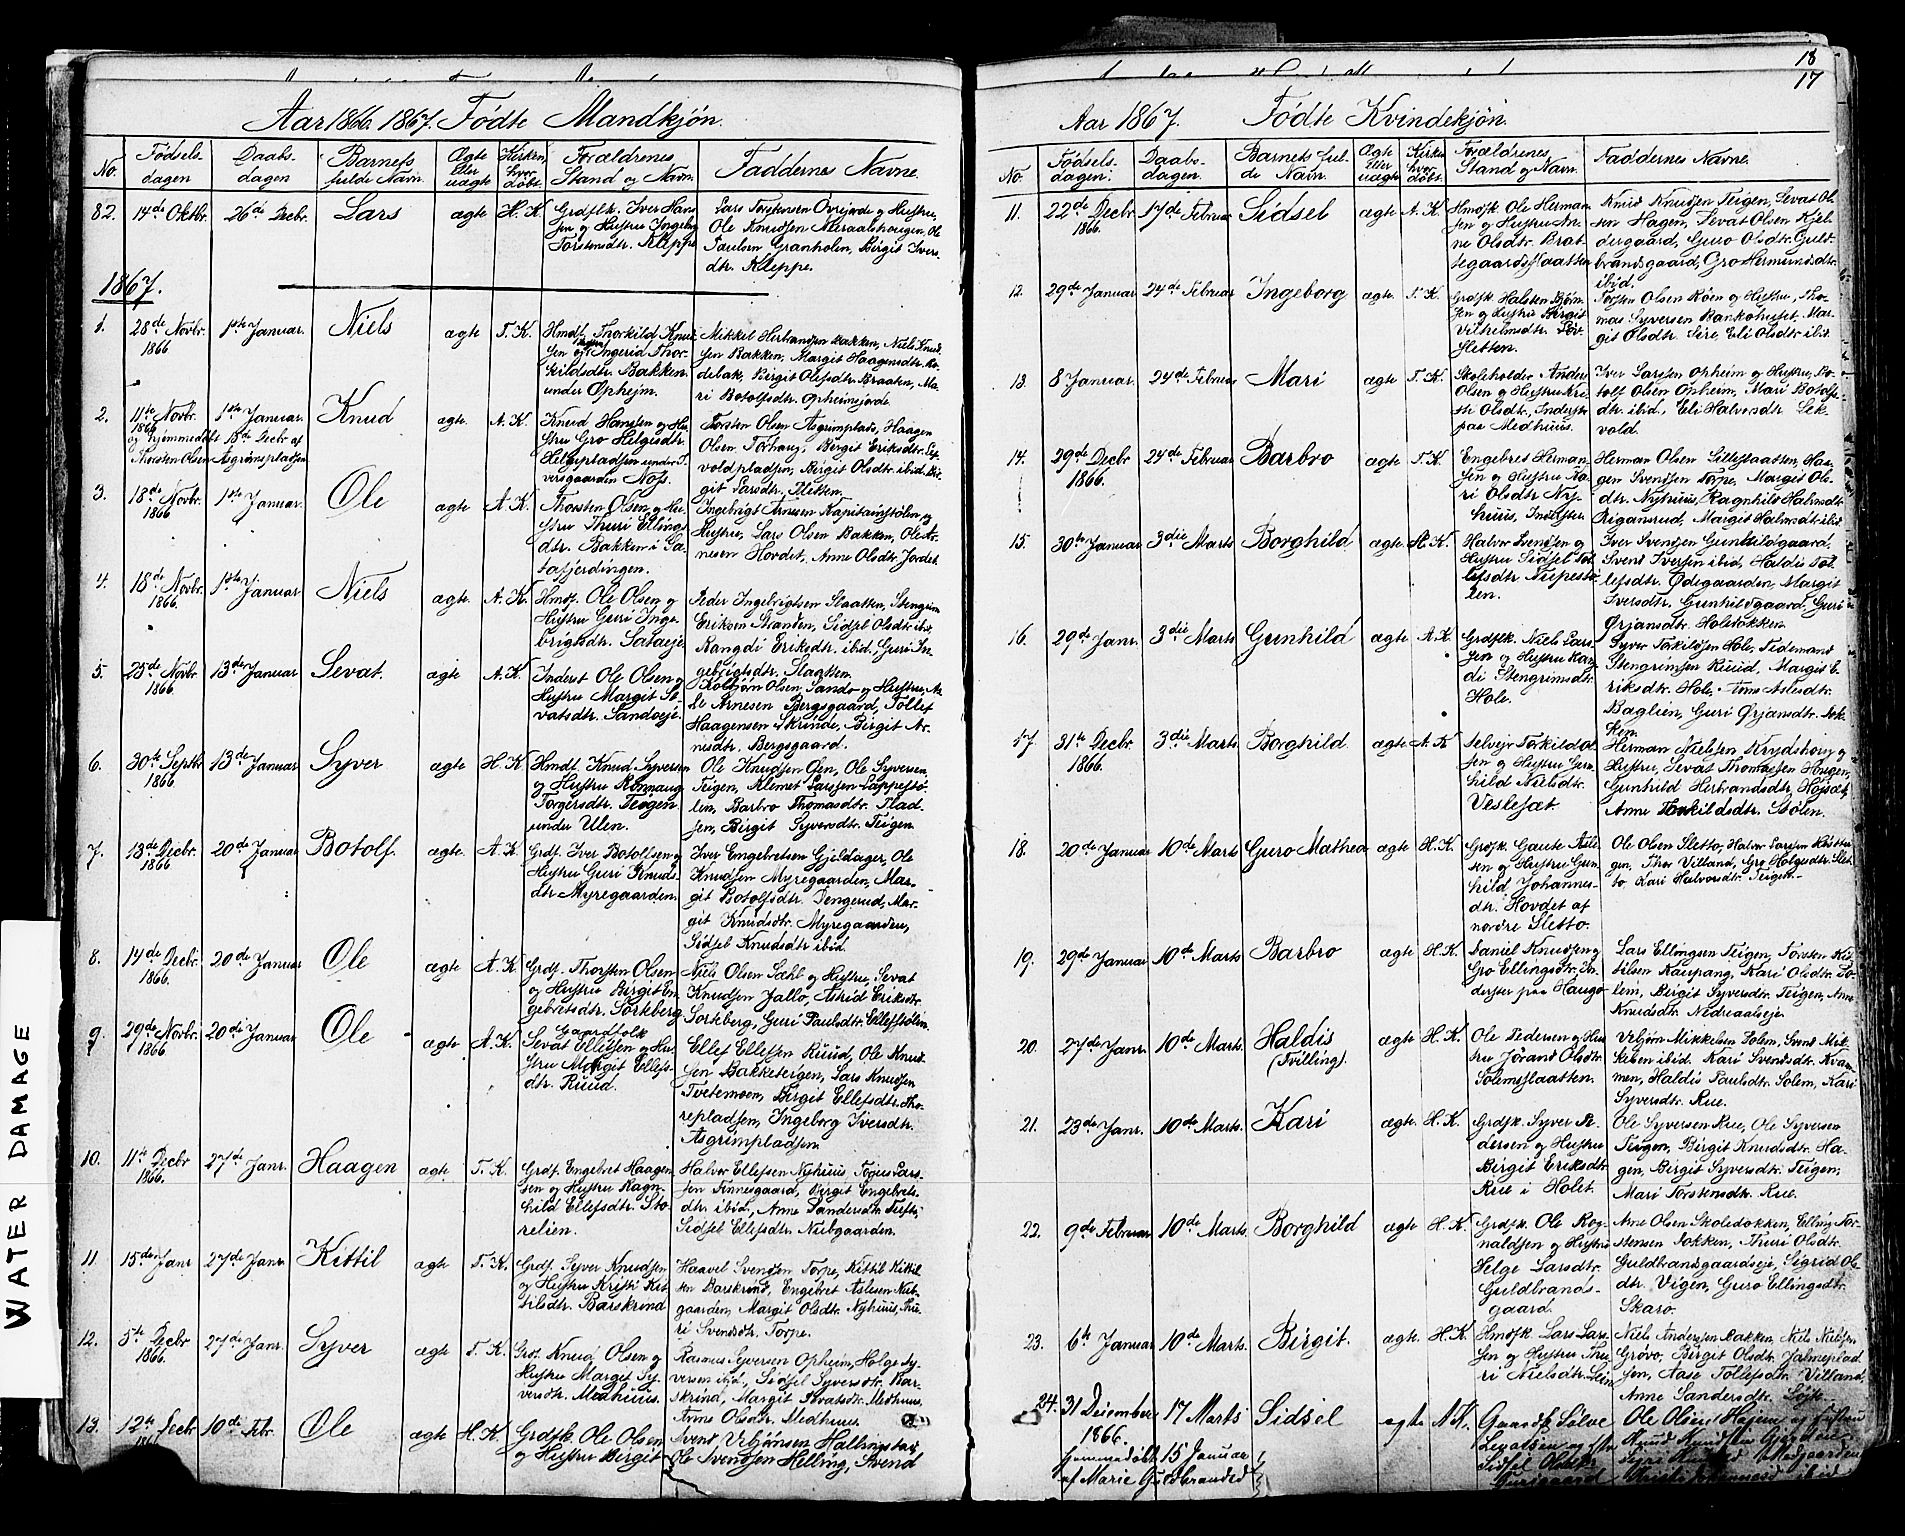 18
17
Aar 1866. 1867. Fødte Mandkjøn.
No.
Fødsels-
dagen
Daabs-
dagen
Barnets
fulde Navn.
Ægte
Eller
uægte
Kirken,
hvor
døbt.
Forældrenes
Stand og Navn.
Faddernes Navne.
82. 14de Oktbr. 26de Decbr. Lars ægte H. K.
Grdflk. Iver Han-
sen og Hustru Ingebor
Torstensdtr. Kleppe
Lars Torstensen Øvrejorde og Hustru,
Ole Knudsen Meraalshougen, Ole
Paulsen Granholen, Birgit Ivers-
dtr. Kleppe.
1867.
1. 28de Novbr. 1ste Januar. Niels ægte T. K.
1866
Hmdf. Thorkild Knud-
sen og Hustru Ingerid Thor-
kildsdtr. Bakken
under Opheim.
Mikkel Herbrandsen Bakken, Niels Knud-
sen Bakken, Margit Haagensdtr. Ro-
debak, Birgit Olesdtr. Braaten, Ma-
ri Botolfsdtr. Opheimsjorde.
2. 11te Novbr. 1ste Januar. Knud ægte. A. K.
1866
og hjemmedøbt 18de Decbr af
Thorsten Olsen Asgrimspladsen
Knud Hansen og Hu-
stru Gro Helgesdtr.
Helgepladsen under S.
versgaarden Næs.
Torsten Olsen Asgrimplads, Haagen
Olsen Torhaug, Birgit Eriksdtr.
voldpladsen, Birgit Olsdtr. ibid. Bir-
git Larsdtr. Sletten.
3. 18de Novbr. 1ste Januar. Ole ægte A. K.
1866
Thorsten Olsen og Hu-
stru Thuri Ellings-
dtr. Bakken i Sa-
tafjerdingen.
Ingebrigt Arnesen Kapitainstølen og
Hustru, Lars Olsen Bakken, Ole Ar-
nesen Hovdet, Anne Olsdtr. Jordet
4. 18de Novbr. 1ste Januar Niels ægte. A. K.
1866.
Hmdf. Ole Olsen og
Hustru Guri Inge-
brigtsdtr. Sataeje.
Peder Ingebrigtsen Slaatten, Stengrim
Eriksen Stranden, Sidsel Olsdtr. ibid.
Rangdi Eriksdtr. ibid, Guri In-
gebrigtsdtr. Slaatten.
5. 25de Novbr. 13de Januar Sevat. ægte A. K.
1866.
Inderst Ole Olsen og
Hustru Margit Se-
vatsdtr. Sandoeje.
Kolbjørn Olsen Sando og Hustru, Ar-
ne Arnesen Bergsgaard, Tollef
Haagensen Skrinde, Birgit Ar-
nesdtr. Bergsgaard.
6. 30te Septbr. 13de Januar Syver ægte H. K.
1866
Hmdf. Knud Syversen
og Hustru Rønnaug
Torgersdtr. Teigen
under Ulen.
Ole Knudsen Øen, Ole Syversen
Teigen, Klemet Larsen Lappestø-
len, Barbro Thomasdtr. Plad-
sen, Birgit Syversdtr. Teigen.
7. 13de Decbr. 20de Januar Botolf. ægte. A. K.
1866
Grdf. Iver Botolfsen og
Hustru Guri Knuds-
dtr. Myregaarden.
Iver Engebretsen Gjeldager, Ole
Knudsen Myregaarden, Mar-
git Botolfsdtr. Dengerud, Mar-
git Knudsdtr. Myregaarden,
Sidsel Knudsdtr ibid.
8. 14de Decbr. 20de Januar Ole ægte A. K.
1866.
Grdf. Thorsten Olsen
og Hustru Birgit En-
gebretsdtr. Sorkberg
Niels Olsen Dahl og Hustru, Sevat
Knudsen Jallo, Astrid Eriksdtr.
Sorkberg, Guri Paulsdtr. Ellefstølen.
9. 29de Novbr. 20de Januar Ole ægte A. K.
1866.
Gaardfolk
Sevat Ellefsen og Hu-
stru Margit Ellefs-
dtr. Ruud.
Ellef Ellefsen Ruud, Ole Knud-
sen Bakketeigen, Lars Knudsen
Tvetemoen, Birgit Ellefsdtr. Tho-
repladsen, Ingeborg Iversdtr.
Asgrimpladsen.
10. 11te Decbr 27de Janr. Haagen ægte T. K.
1866.
Grdf. Engebret Haagen-
sen og Hustru Ragn-
hild Ellefsdtr. Sto-
relien.
Halvor Ellefsen Nyhuus, Tosten Lars-
sen Finnesgaard, Birgit Engebrets-
dtr. ibid., Anne Sandersdtr. Tufte,
Sidsel Ellefsdtr. Nubgaarden.
11 15de Janr 27de Janr. Kittil ægte T. K.
Grdf. Syver Knudsen
og Hustru Kristi Kit-
tilsdtr. Barskrind
Haavel Svendsen Torpe, Kittil Kittil-
sen Barskrind, Engebret Aslesen Nub-
gaarden, Margit Olsdtr. Nyhuus, Thu-
ri Svendsdtr. Torpe.
12. 5te Decbr 27de Janr. Syver ægte T. K.
1866.
Grdf. Knud Olsen og
Hustru Margit Sy-
versdtr. Medhuus.
Rasmus Syversen Opheim, Helge Sy-
versen ibid, Sidsel Syversdtr. Bar-
skrind, Margit Sevatsdtr. Medhuus,
Anne Olsdtr. Medhuus.
13. 12te Decbr 10de Febr. Ole ægte H. K.
1866
Grdfk. Ole Olsen
og Hustru Birgit
Svend Vebjørnsen Hallingstad
Ole Svendsen Helling, Svend
Aar 1867. Fødte Kvindekjøn.
No.
Fødsels-
dagen.
Daabs-
dagen.
Barnets ful-
de Navn.
Ægte
Eller
uægte
Kirke
hvor
døbt.
Forældrenes
Stand og Navn.
Faddernes Navne.
11. 22de Decbr 17de Februar Sidsel ægte A. K.
1866.
Hmdfk. Ole Herman-
sen og Hustru An-
ne Olsdtr. Brat-
tegaardsslaatten
Knud Knudsen Teigen, Sevat Ol-
sen Hagen, Sevat Olsen Kjel-
dergaard, Guro Olsdtr. Guld-
brandsgaard, Gro Hermundsdtr.
ibid.
12. 29de Januar 24de Februar Ingeborg ægte T. K.
Grdfk. Halsten Bjørn-
sen og Hustru Birgit
Vilhelmsdtr. Løst-
sletten.
Torsten Olsen Røen og Hustru, Tho-
mas Syversen Bankohuset, Mar-
git Olsdtr. Lire, Eli Olsdtr. ibid.
13. 8 Januar. 24de Februar Mari ægte T. K.
Skoleholder Anders
Olsen og Hustru Kri-
sti Olsdtr, Inderster
paa Medhuus.
Iver Larsen Opheim og Hustru, Bo-
tolf Olsen Opheim, Mari Botolfs-
dtr. ibid, Eli Halvorsdtr. Lek-
vold.
14. 29de Decbr 24de Februar Barbro ægte T. K.
1866.
Engebret Herman-
sen og Hustru Ka-
ri Olsdtr. Ny-
huus, Inderster
Herman Olsen Lillestaatten, Haa-
gen Svendsen Torpe, Margit Ols-
dtr. Nyhuus, Ragnhild Halvorsdtr.
Riganrud, Margit Halvorsdtr. ibid
15. 30te Januar 3die Marts. Borghild ægte H. K.
Halvor Svendsen og
Hustru Sidsel Tol-
lefsdtr Niepestø-
len.
Iver Svendsen Gunhildgaard,
Svend Iversen ibid, Haldis Tol-
lefsdtr. Ødegaarden, Margit
Iversdtr. Gunhildgaard, Guri
Ørjansdtr. Holedokken.
16. 29de Janr. 3die Marts Gunhild ægte A. K.
Grdfk. Niels Lars-
sen og Hustru Ran-
di Stengrimsdtr.
Hole.
Syver Torkildsen Hole, Tidemand
Stengrimsen Ruud, Margit E-
riksdtr. Hole, Anne Aslesdtr.
Baglien, Guri Ørjansdtr. Dok-
ken.
17. 31te Decbr. 3die Marts. Borghild. ægte A. K.
1866.
Selveir Torkild Ol-
sen og Hustru Gun-
hild Nielsdtr.
Veslesæt.
Herman Nielsen Krydshoug og
Hustru, Sevat Thomassen Haugen,
Gunhild Herbrandsdtr. Højsæt,
Anne Torkildsdtr. Stølen.
18. 20de Januar 10de Marts Guro Mathea ægte H. K.
Grdfk. Gaute Asle-
sen og Hustru Gun-
hild Johannes-
dtr. Hovdet af
nordre Sletto.
Ole Olsen Sletto, Halvor Larsen
gen, Thor Villand, Gro Holgesdtr. Slet-
to, Kari Halvorsdtr. Teigen.
19. 29de Januar 10de Marts. Barbro ægte H. K.
Daniel Knudsen og
Gro Ellingsdtr, In-
derster paa Haugo
Lars Ellingsen Teigen, Torsten Kit-
tilsen Kaupang, Kari Olsdtr. So-
lem, Birgit Syversdtr. Teigen, Anne
Knudsdtr. Nedreaalseje.
20. 27de Janr. 10de Marts. Haldis ægte H. K.
(Tvilling).
Ole Pedersen og Hu-
stru Jørand Olsdtr.
Solemslaatten.
Vebjørn Mikkelsen Solem, Svend Mik-
kelsen ibid. Kari Svendsdtr. Kvam-
men, Haldis Paulsdtr. Solem, Kari
Syversdtr. Rue.
21. 23de Janr. 10de Marts. Kari ægte H. K.
Grdfk. Syver Pe-
dersen og Hustru
Birgit Eriksdtr.
Rue i Holet.
Ole Syversen Rue, Ole Syversen
Teigen, Birgit Knudsdtr. Ha-
gen, Birgit Syversdtr. Teigen,
Mari Torstensdtr. Rue.
22. 9de Februar 10de Marts. Borghild ægte H. K.
Grdfk. Ole Rog-
naldsen og Hustru
Helge Larsdtr.
Guldbrands-
gaard.
Arne Olsen Skoledokken, Elling Tor-
stensen Dokken, Thuri Olsdtr.
Guldbrandsgaardseje, Sigrid Ols-
dtr. Vigen, Guro Ellingsdtr.
Skaro.
23. 6te Januar 10de Marts Birgit. ægte. H. K.
Hmdfk Lars Lars-
sen og Hustru Thu-
ri Nielsdtr.
Niels Andersen Bakken, Niels Nielsen
Grøvo, Birgit Olsdtr. Jalmeplad-
sen, Aase Tollefsdtr. Villand,
Anne Sandersdtr. Løjte.
24. 31 December 17 Marts Sidsel ægte A. K.
1866.
hjemmedøbt 15 Januar
af Marie Guldbrandsd
Gaardfk Sølve
Levatsen og Hstr
Sidsel Olsdtr
Ole Olsen Hagen og Hustru
Knud Knudsen
WATER DAMAGE